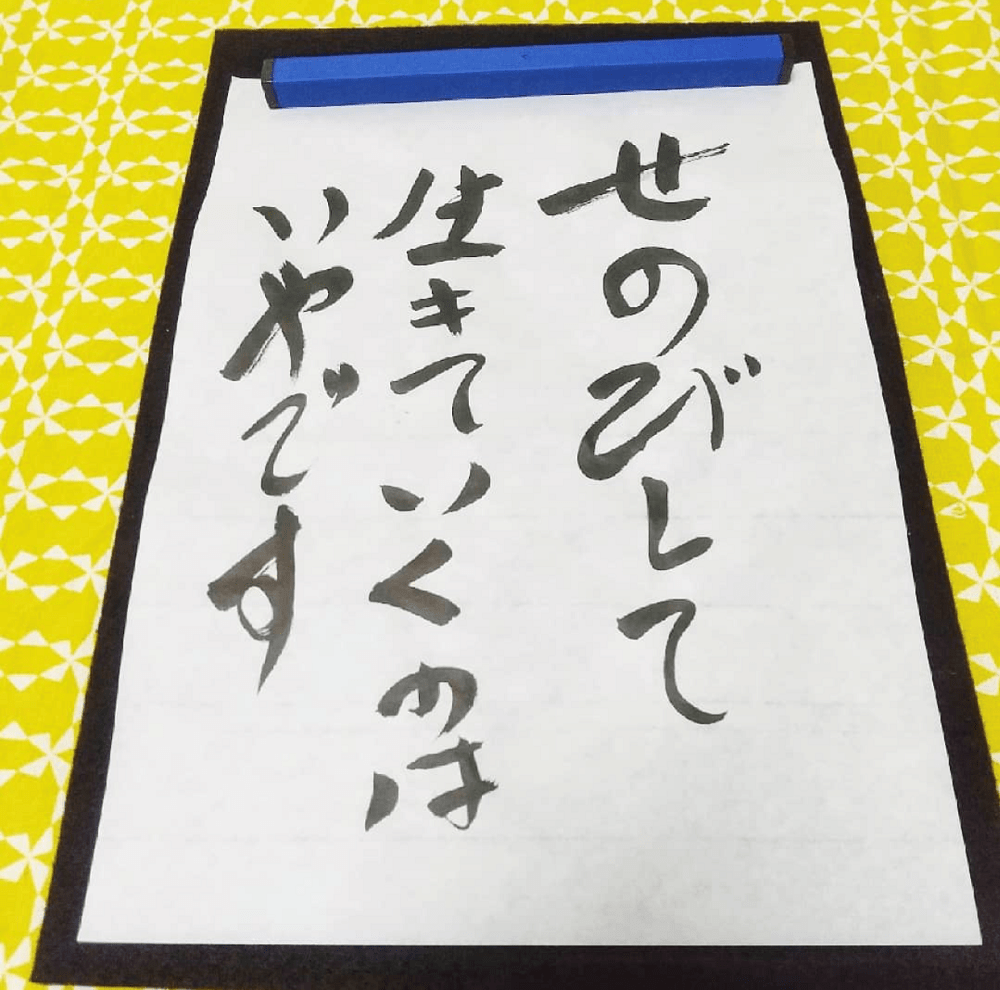 せのびして
生きていくのは
いやです